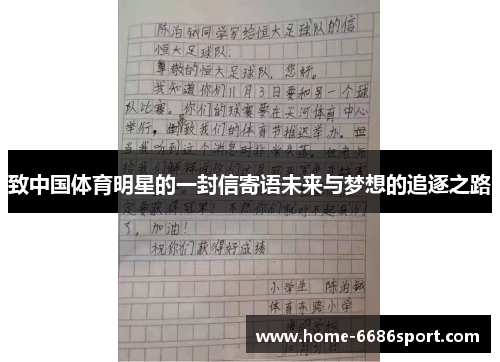 陈泊钺同学写给恒大足球队的信
恒大足球队:
尊敬的恒大足球队,您好。
我知道你们11月3日要和另一个球
队比赛。你们的球赛要在天河体育中心
举行。导致我们的体育节推迟举办。
当我听到这个消息时
致中国体育明星的一封信寄语未来与梦想的追逐之路
定要获得冠军!不然你们就对不起我们
了,加油!
祝你们获得好成绩
小学生 陈泊钺
体育东路小学
www.home-6686sport.com